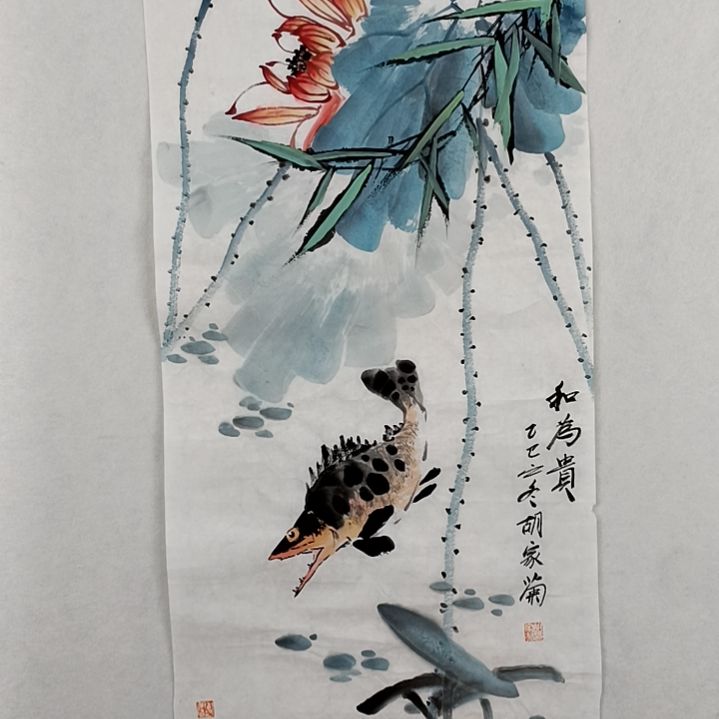 和為貴
乙巳之冬胡家菊